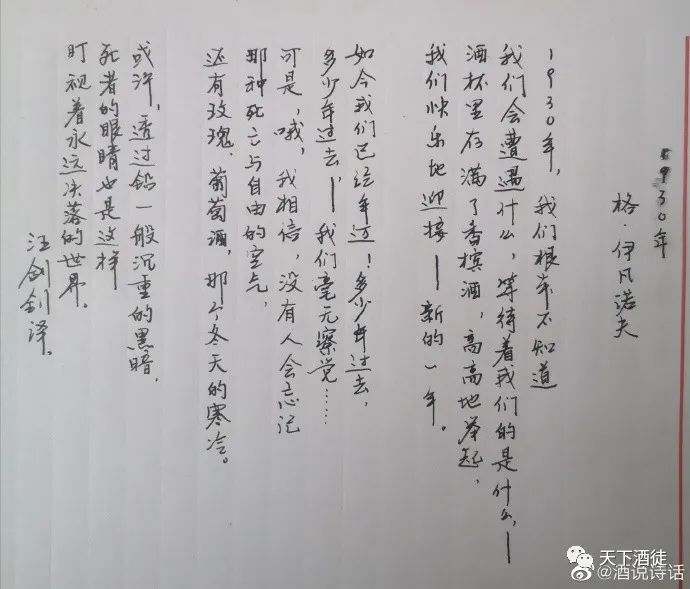 1930年
格·伊凡诺夫
1930年，我们根本不知道
我们会遭遇什么，等待着我们的是什么，—
酒杯里存满了香槟酒，高高地举起，
我们快乐地迎接—新的一年。
如今我们已经年迈！多少年过去，
多少年过去，—我们毫无察觉……
可是，哦，我相信，没有人会忘记
那种死亡与自由的空气，
还有玫瑰、葡萄酒，那个冬天的寒冷。
或许，透过铅一般沉重的黑暗，
死者的眼睛也是这样
盯视着永远决落的世界。
汪剑钊译。
天下酒徒
@酒说诗话